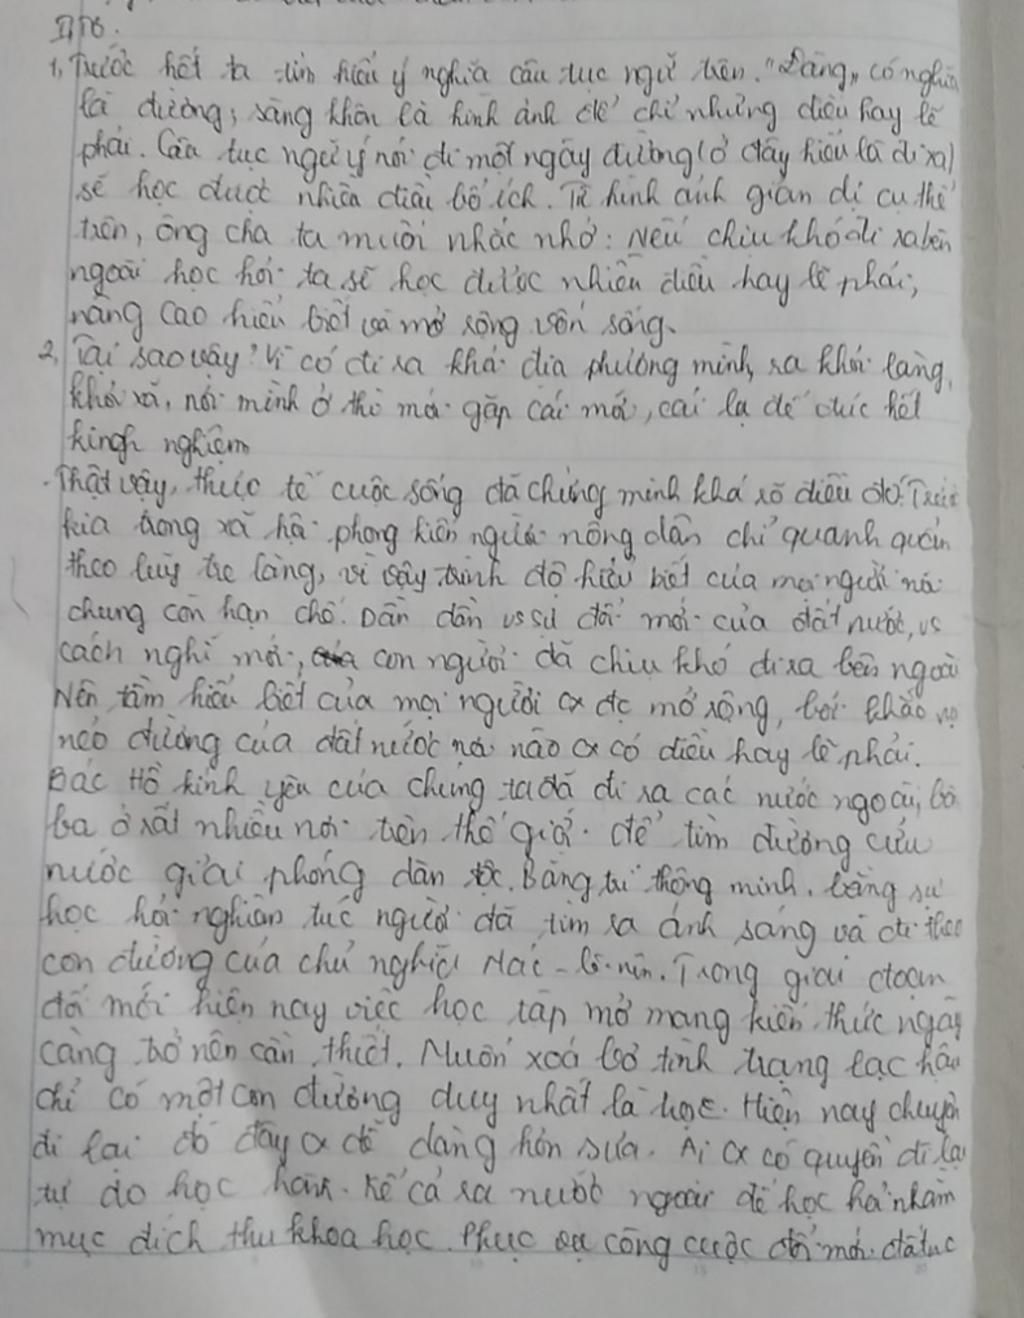 1, Trước hết ta tìm hiểu ý nghĩa câu tục ngữ trên. "Đàng" có nghĩa
là đường; sàng khôn là hình ảnh để chỉ những điều hay lẽ
phải. Câu tục ngữ ý nói đi một ngày đường (ở đây hiểu là đi xa)
sẽ học được nhiều điều bổ ích. Từ hình ảnh giản dị cụ thể
trên, ông cha ta muốn nhắc nhở: Nếu chịu khó đi ra bên
ngoài học hỏi ta sẽ học được nhiều điều hay lẽ phải,
nâng cao hiểu biết và mở rộng vốn sống.
2, Tại sao vậy? Vì có đi ra khỏi địa phương mình, ra khỏi làng,
khỏi xã, nơi mình ở thì mới gặp cái mới, cái lạ để
kingh nghiệm
Thật vậy, thực tế cuộc sống đã chứng minh khá rõ điều đó. Trước
kia trong xã hội phong kiến người nông dân chỉ quanh quẩn
theo luỹ tre làng, vì vậy trình độ hiểu biết của mọi người nói
chung còn hạn chế. Dần dần vs sự đổi mới của đất nước, vs
cách nghĩ mới, con người đã chịu khó đi ra bên ngoài
Nên tầm hiểu biết của mọi người cx đc mở rộng, bởi khắp mọi
nẻo đường của đất nước nơi nào cx có điều hay lẽ phải.
Bác Hồ kính yêu của chúng ta đã đi ra các nước ngoài, bô
ba ở rất nhiều nơi trên thế giới để tìm đường cứu
nước giải phóng dân tộc. Bằng trí thông minh, bằng sự
học hỏi nghiêm túc người đã tìm ra ánh sáng và đi theo
con đường của chủ nghĩa Mác - Lê-nin. Trong giai đoạn
đổi mới hiện nay việc học tập mở mang kiến thức ngày
càng trở nên cần thiết. Muốn xoá bỏ tình trạng lạc hậu
chỉ có một con đường duy nhất là học. Hiện nay chuyện
đi lại đó đây cx dễ dàng hơn xưa. Ai cx có quyền đi lại
tự do học hành. Kể cả ra nước ngoài để học hỏi nhằm
mục đích khoa học. Phục vụ công cuộc đổi mới